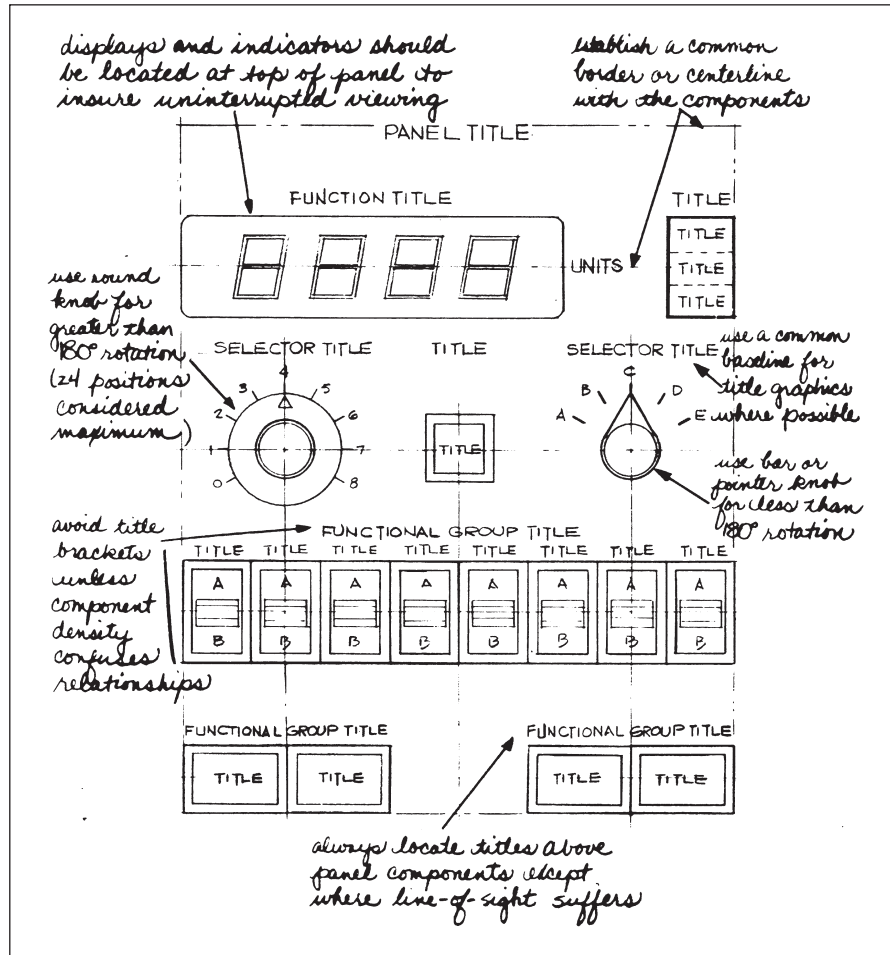 displays and indicators should
be located at top of panel to
insure uninterrupted viewing
establish a common
border or centerline
with the components
PANEL TITLE
FUNCTION TITLE
TITLE
UNITS
TITLE
TITLE
TITLE
use round
knob for
greater than
180° rotation
(24 positions
considered
maximum)
SELECTOR TITLE
0
1
2
3
4
5
6
7
8
TITLE
TITLE
SELECTOR TITLE
A
B
C
D
E
use a common
baseline for
title graphics
where possible
use bar or
pointer knob
for less than
180° rotation
avoid title
brackets
unless
component
density
confuses
relationships
FUNCTIONAL GROUP TITLE
TITLE TITLE TITLE TITLE TITLE TITLE TITLE TITLE
A A A A A A A A
B B B B B B B B
FUNCTIONAL GROUP TITLE
TITLE TITLE
FUNCTIONAL GROUP TITLE
TITLE TITLE
always locate titles above
panel components except
where line-of-sight suffers